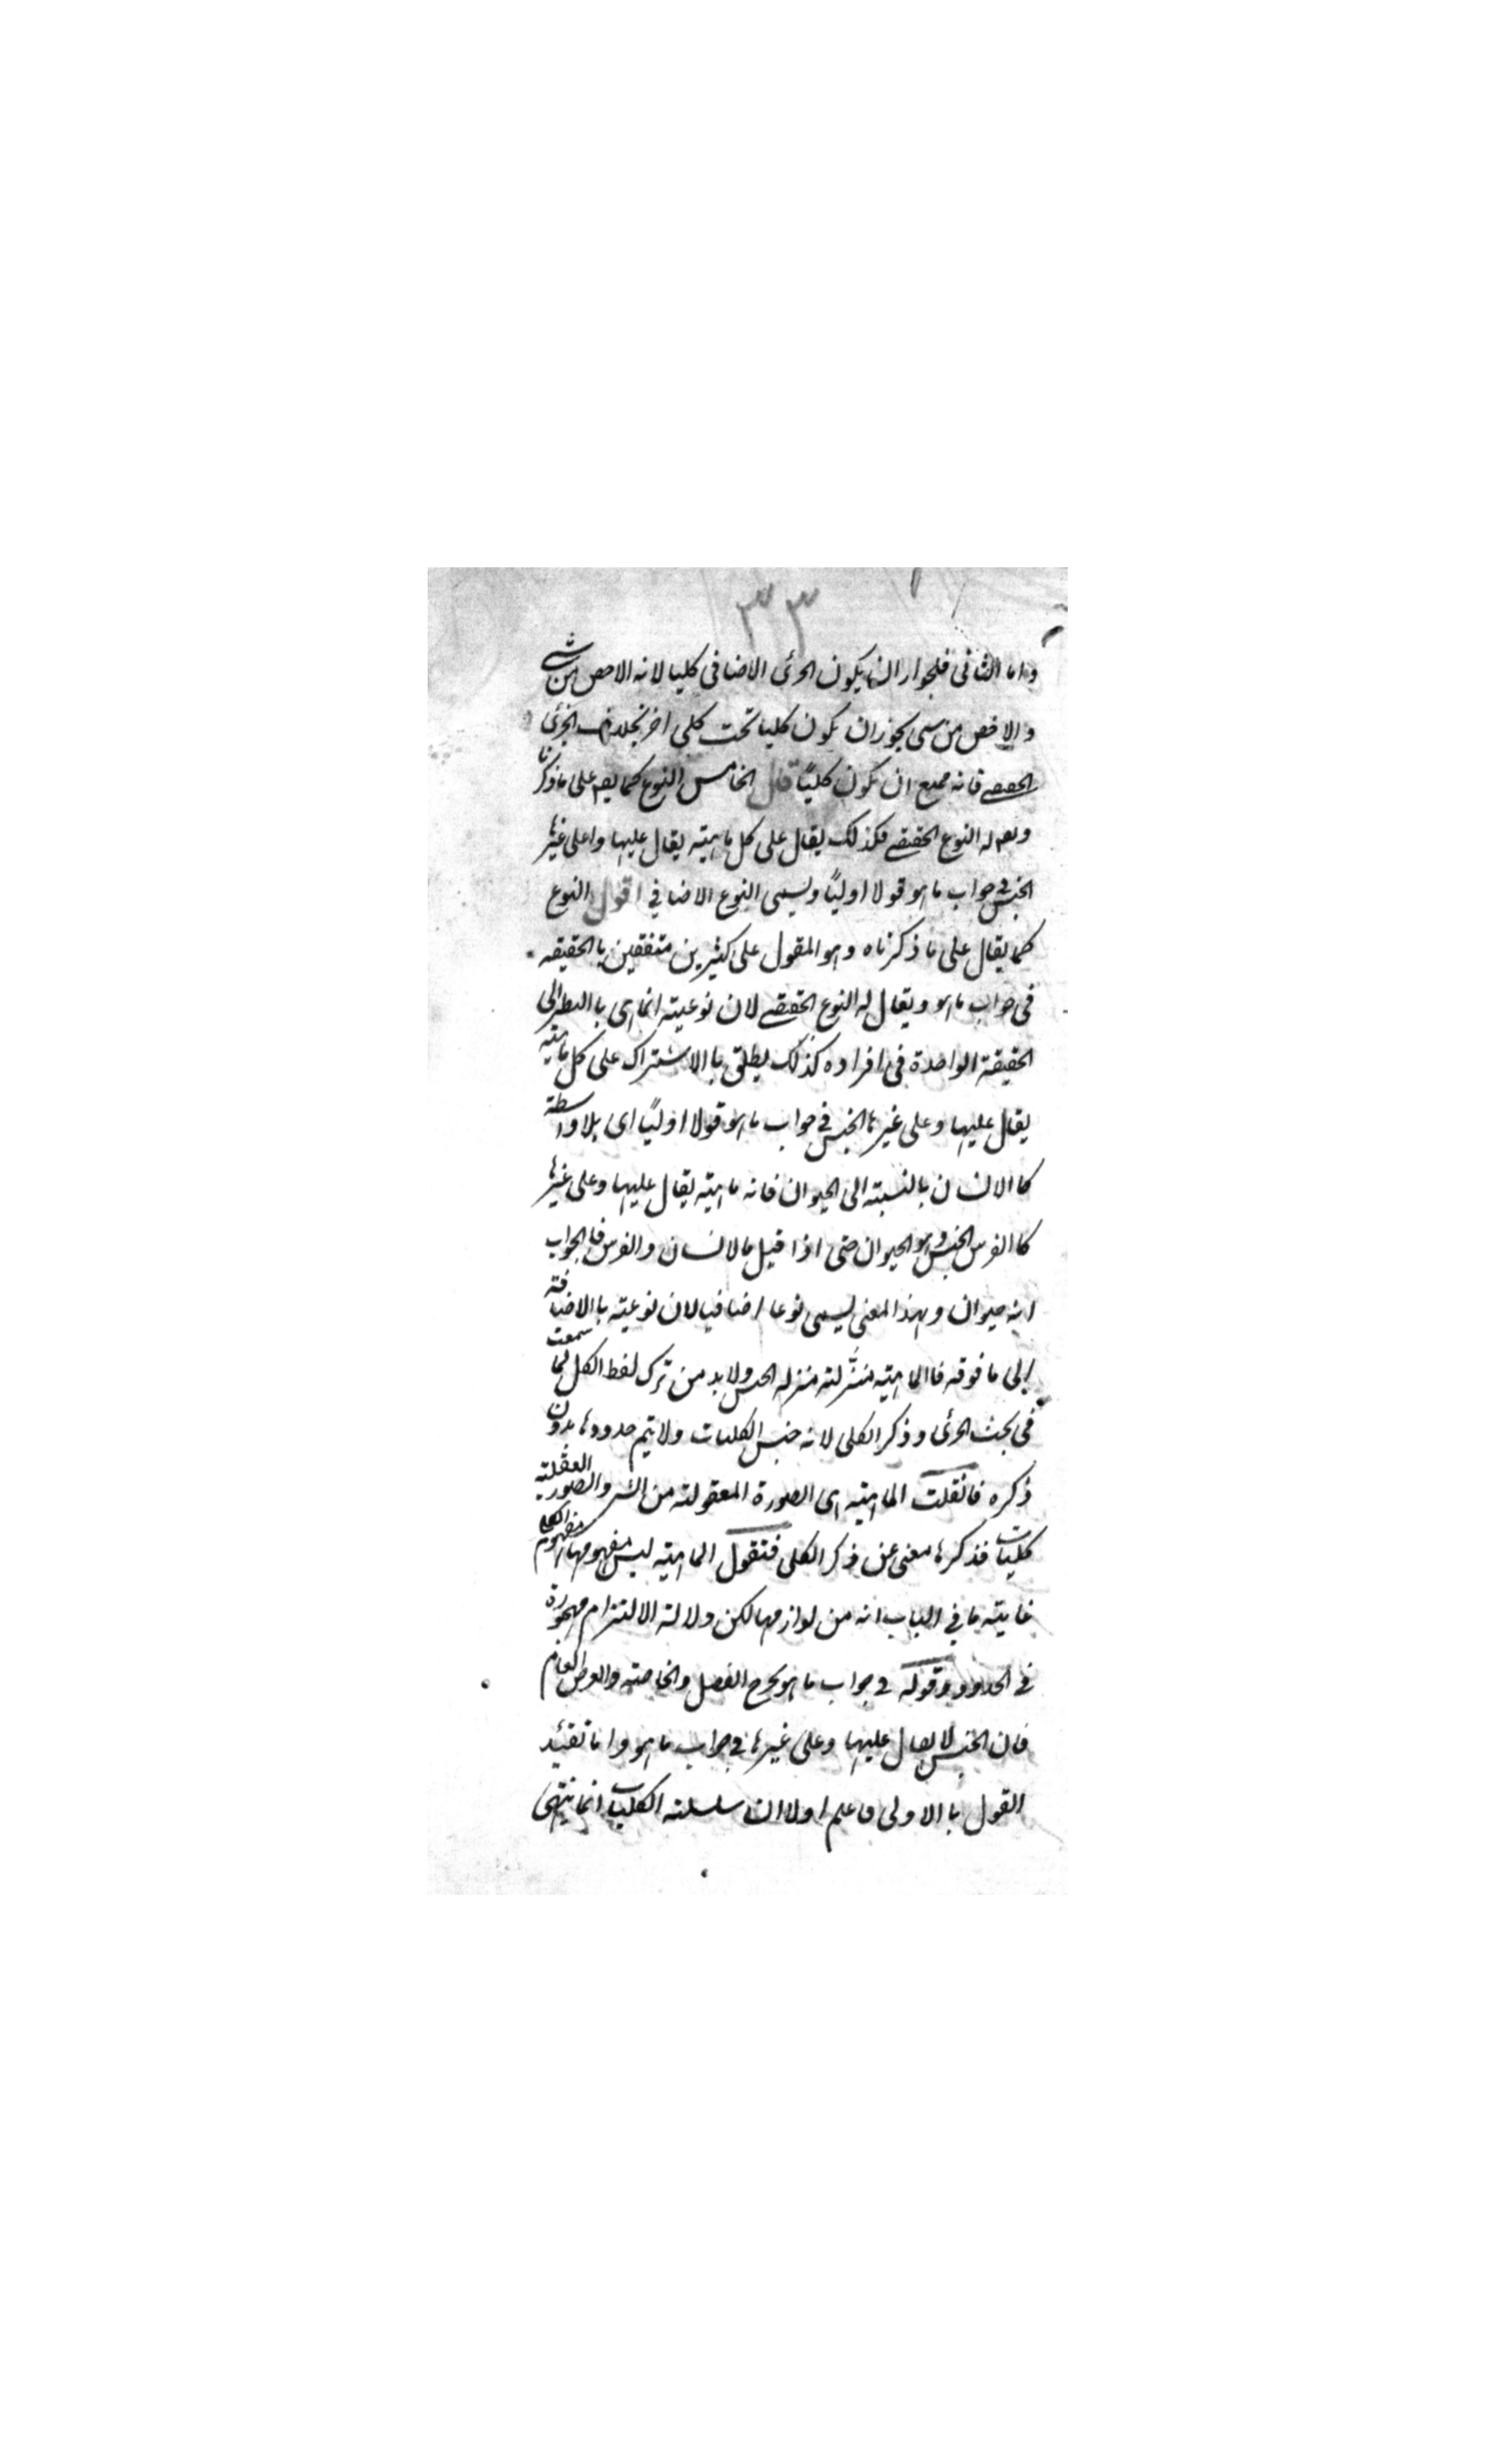 ٣٣
واما الثانى فلجواز ان يكون الجزئى الاضافى كليا لانه الاخص من شئ
والاخص من شئ يجوز ان يكون كليا تحت كلى اخر بخلاف الجزئى
الحقيقے فانه يمتنع ان يكون كليًا قال الخامس النوع كما يقال على ما ذكرنا
ويقال له النوع الحقيقے فكذلك يقال على كل ماهيته يقال عليها وعلى غيرها
الجنس فى جواب ما هو قولا اوليًا ويسمى النوع الاضافي اقول النوع
كما يقال على ما ذكرناه وهو المقول على كثيرين متفقين با الحقيقه
فى جواب ما هو ويقال له النوع الحقيقے لان نوعيته انما هى با النظر الى
الحقيقة الواحدة فى افراده كذلك يطلق با الاشتراك على كل ماهيته
يقال عليها وعلى غيرها الجنس فى جواب ما هو قولا اوليًا اى بلا واسطة
كا الانسان بالنسبته الى الحيوان فانه ماهيته يقال عليها وعلى غيرها
كا الفرس الجنس وهو الحيوان حتى اذا قيل ما لانسان والفرس فا الجواب
انه حيوان وبهذا المعنى يسمى نوعا اضافيا لان نوعيته با الاضافته
الى ما فوقه فا الماهيته منزلته منزله الجنس ولابد من ترك لفظ الكل لما سمعت
فى بحث الجزئى وذكر الكلى لانه جنس الكليات ولا يتم حدودها بدون
ذكره فانقلت الماهيته هى الصورة المعقولته من الشئ والصور العقليته
كليات فذكرها مغنى عن ذكر الكلى فنقول الماهيته ليس مفهومها مفهوم الكلى
غايته ما في الباب انه من لوازمها لكن دلالته الالتزام مهجورة
فى الحدود وقوله فى جواب ما هو يخرج الفصل والخاصته والعرض العام
فان الجنس لا يقال عليها وعلى غيرها فى جواب ما هو واما تقئيد
القول با الاولى فاعلم اولا ان سلسلته الكليات انما ينتهى